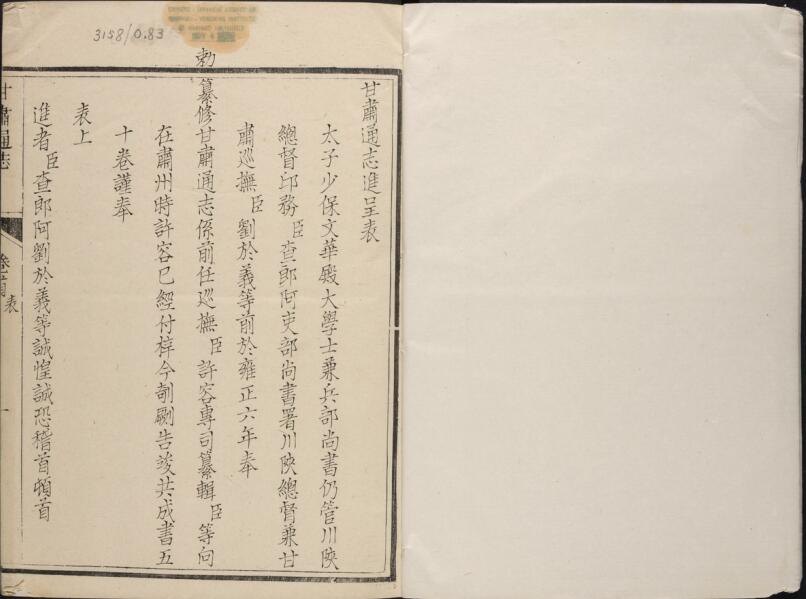 3158/0.83
甘肅通志進呈表
太子少保文華殿大學士兼兵部尚書仍管川陝
總督印務臣查郎阿吏部尚書署川陝總督兼甘
肅巡撫臣劉於義等前於雍正六年奉
勅纂修甘肅通志係前任巡撫臣許容專司纂輯臣等向
在肅州時許容已經付梓今剞劂告竣共成書五
十卷謹奉
表上
進者臣查郎阿劉於義等誠惶誠恐稽首頓首
甘肅通志
表
一